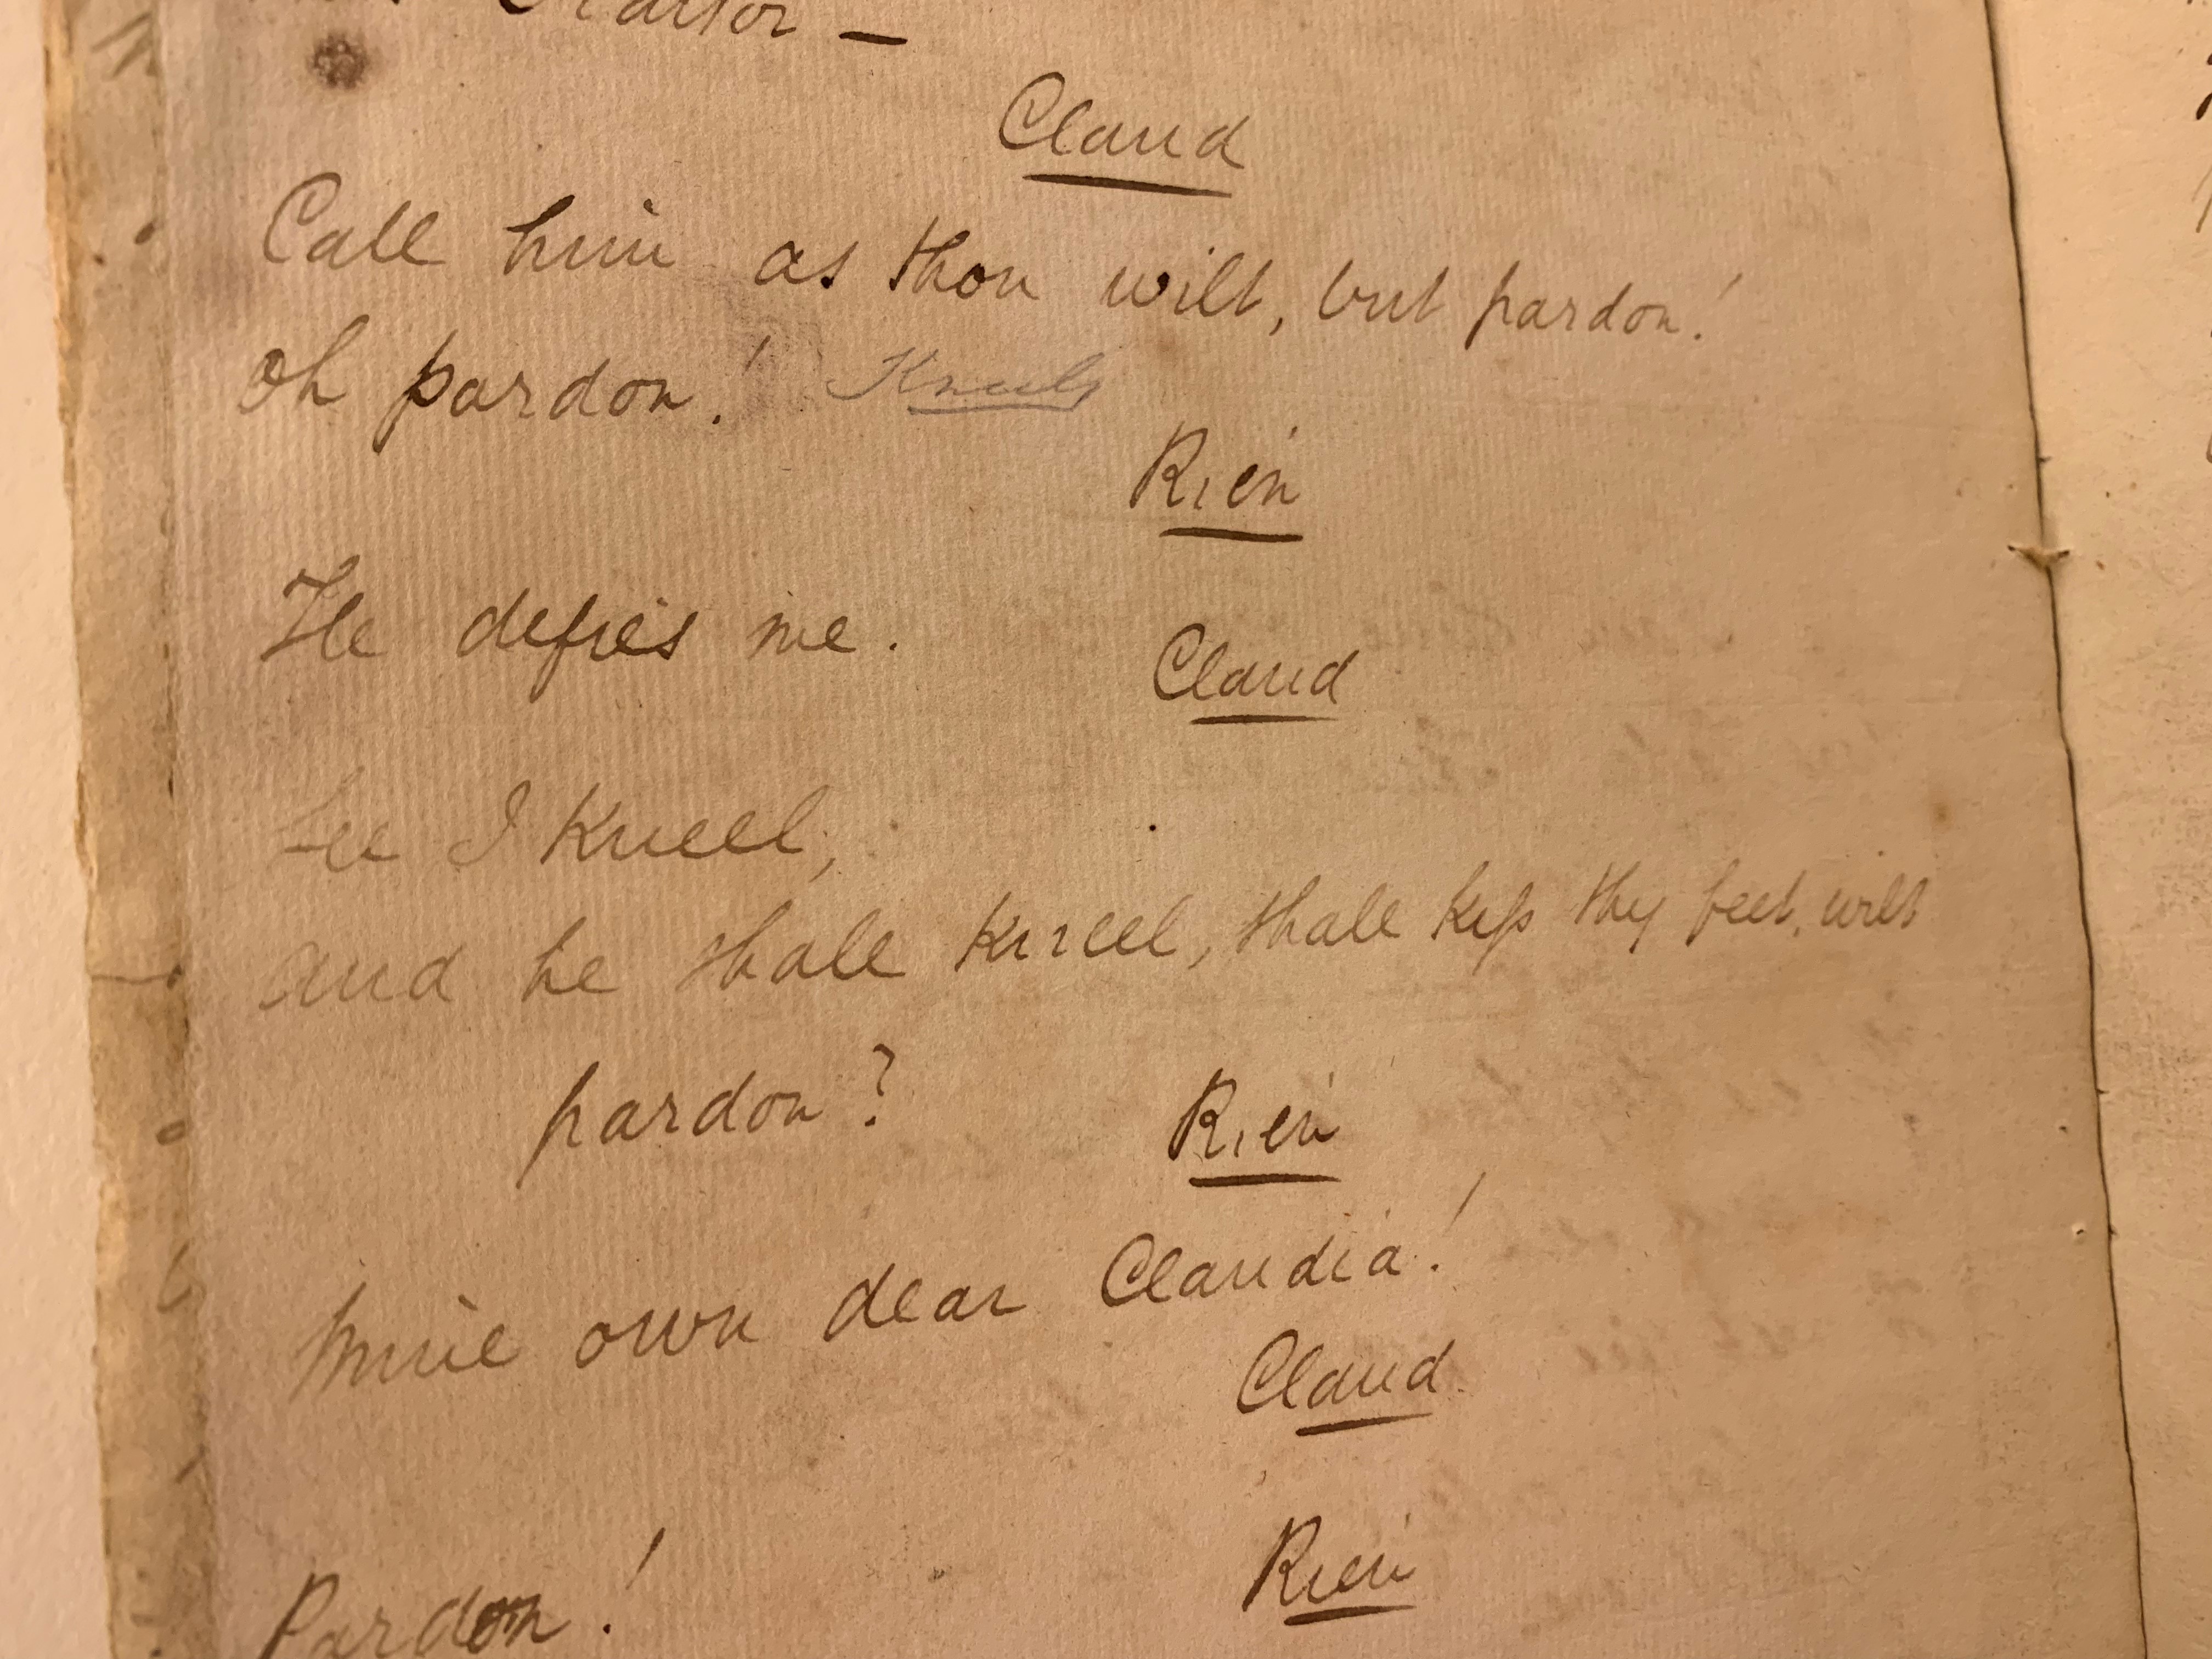 Traitor —
Claud
Call him as thou wilt, but pardon!
oh pardon! Kneels
Rien
He defies me.
Claud
See I kneel,
and he shall kneel, shall kiss thy feet, wilt
pardon?
Rien
Mine own dear Claudia!
Claud
Rien
Pardon!